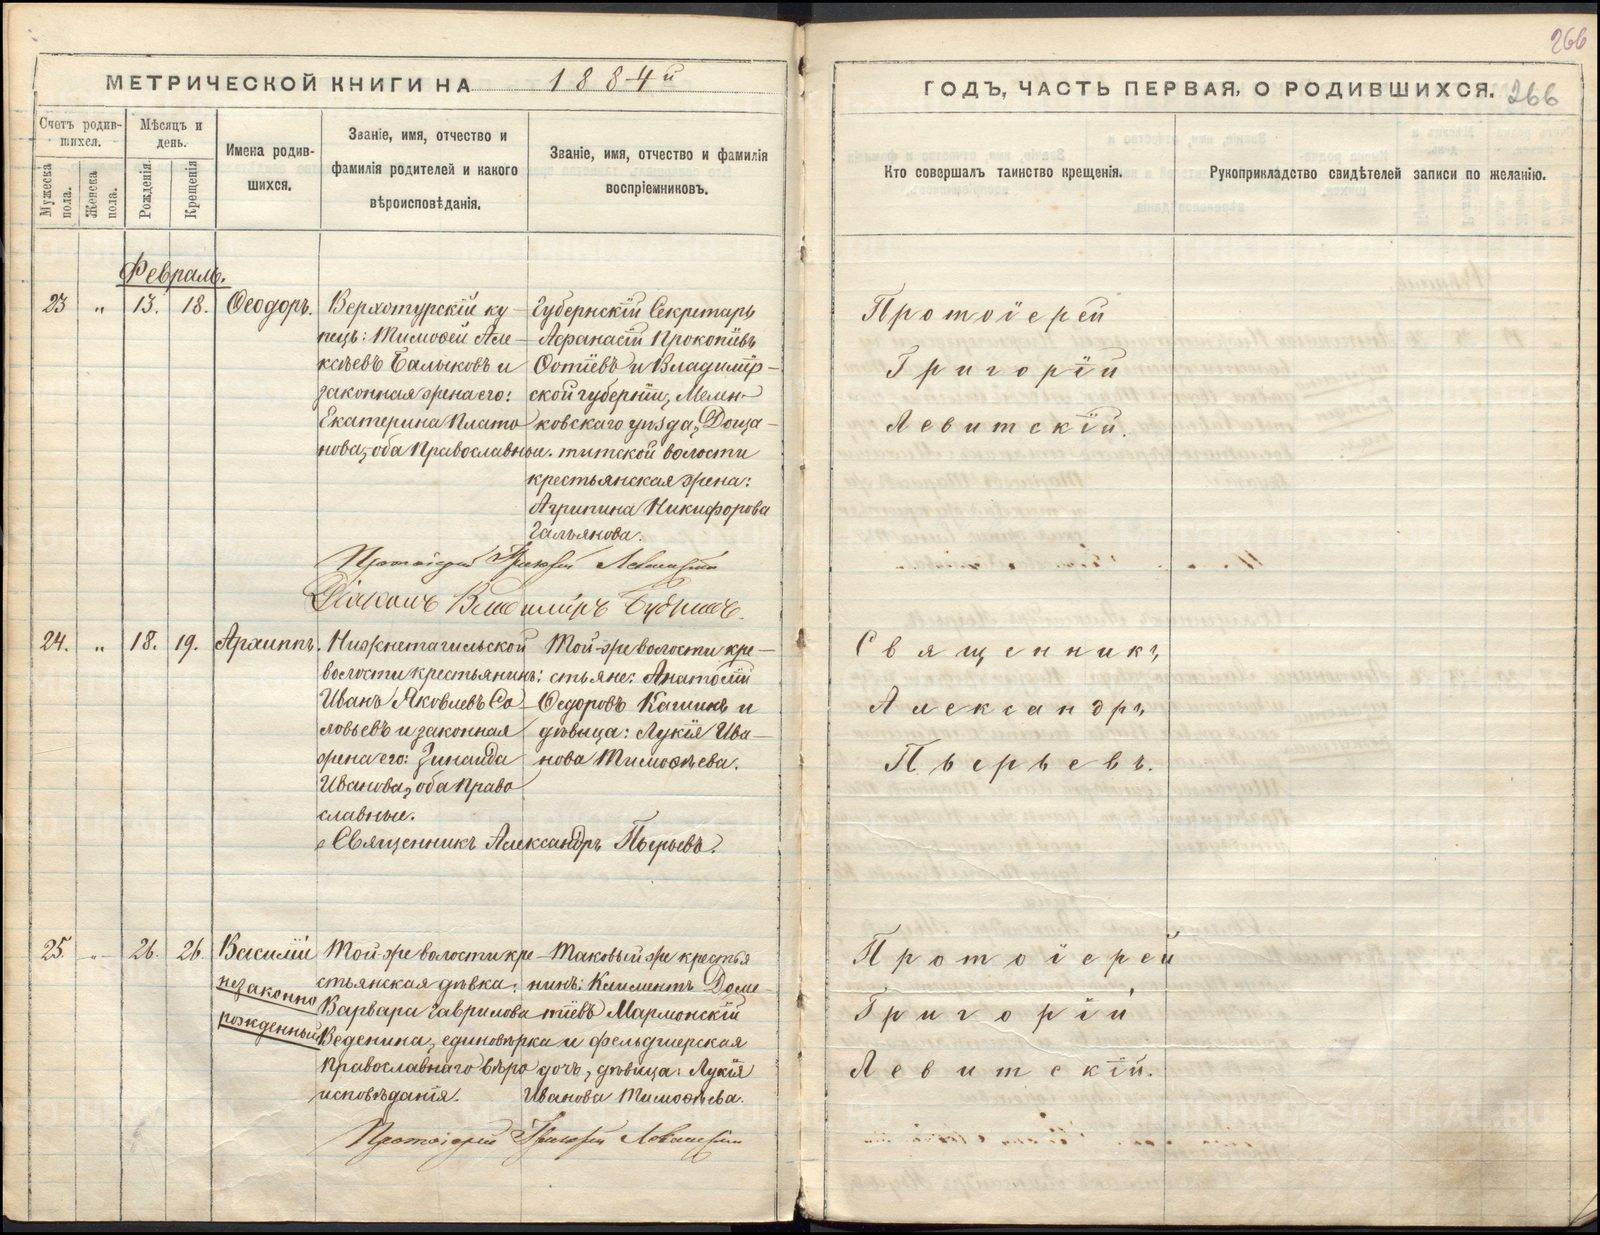 266
МЕТРИЧЕСКОЙ КНИГИ НА 1884й
ГОДЪ, ЧАСТЬ ПЕРВАЯ, О РОДИВШИХСЯ. 266
Счетъ родив-
шихся.
Мужеска
пола.
Женска
пола.
Мѣсяцъ и
день.
Рожденія.
Крещенія
Имена родив-
шихся.
Званіе, имя, отчество и
фамилія родителей и какого
вѣроисповѣданія.
Званіе, имя, отчество и фамилія
воспріемниковъ.
Кто совершалъ таинство крещенія.
Рукоприкладство свидѣтелей записи по желанію.
Февраль.
23 " 13. 18. Ѳеодоръ.
Верхотурскій ку-
пецъ: Тимоѳей Але-
ксѣевъ Балыковъ и
законная жена его:
Екатерина Плато
нова, оба Православные.
Губернскій Секретарь
Аѳанасій Прокопіевъ
и Владимір-
ской губерніи, Мелен-
ковскаго уѣзда, Доща-
титской волости
крестьянская жена:
Агрипина Никифорова
Гальянова.
Протоіерей
Григорій
Левитскій.
Протоіерей Григорій Левитскій
Діаконъ Владиміръ
24. " 18. 19. Архиппъ.
Нижнетагильской
волости крестьянинъ:
Иванъ Яковлевъ Со-
ловьевъ и законная
жена его: Зинаида
Иванова, оба Право
славные.
Той-же волости кре-
стьяне: Анатолій
Ѳедоровъ Кашинъ и
дѣвица: Лукія Ива-
нова Тимоѳѣева.
Священникъ
Александръ
Пьерьевъ.
Священникъ Александръ Пьерьевъ.
25. " 26. 26. Василій
незаконно
рожденный
Той-же волости кре-
стьянская дѣвка:
Варвара Гаврилова
Веденина, единовѣрка
Православнаго вѣро
исповѣданія.
Таковый же крестья
нинъ: Климентъ Доме-
тіевъ Мармонскій
и фельдшерская
дочь, дѣвица: Лукія
Иванова Тимоѳѣева.
Протоіерей
Григорій
Левитскій.
Протоіерей Григорій Левитскій